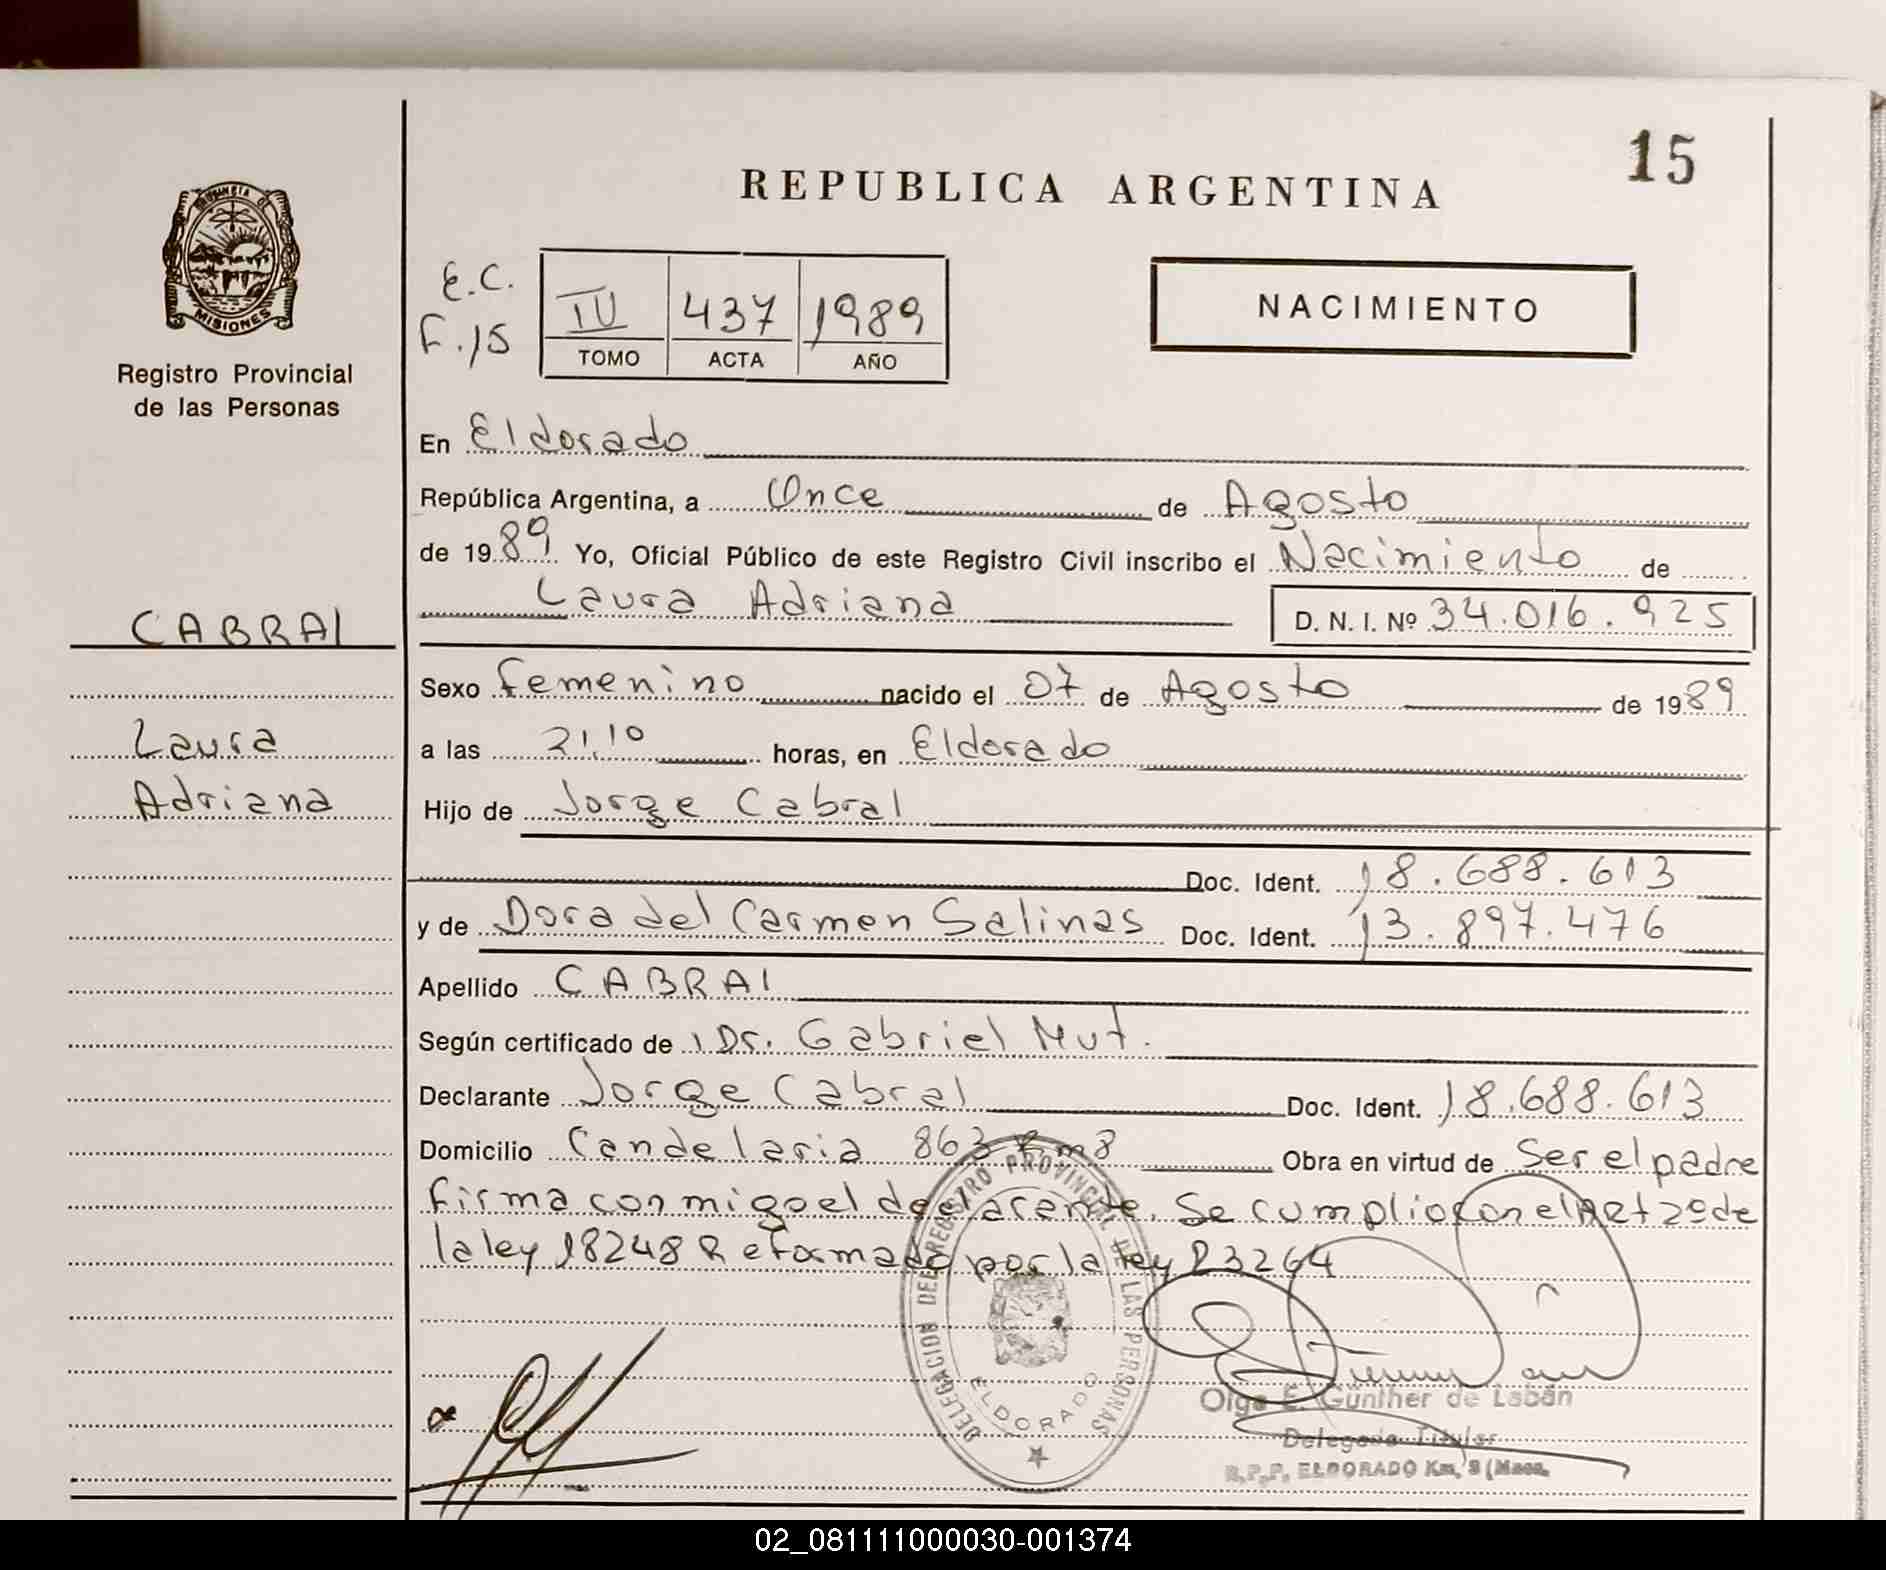 15
REPUBLICA ARGENTINA
E.C.
F. 15
IV 437 1989
TOMO ACTA AÑO
NACIMIENTO
MISIONES
Registro Provincial
de las Personas
En Eldorado
República Argentina, a Once de Agosto
de 1989 Yo, Oficial Público de este Registro Civil inscribo el Nacimiento de
Laura Adriana D. N. I. Nº 34.016.925
CABRAl
Sexo femenino nacido el 07 de Agosto de 1989
Laura
a las 21.10 horas, en Eldorado
Adriana
Hijo de Jorge Cabral
Doc. Ident. 18.688.613
y de Dora del Carmen Salinas Doc. Ident. 13.897.476
Apellido CABRAl
Según certificado de Dr. Gabriel Mut.
Declarante Jorge Cabral Doc. Ident. 18.688.613
Domicilio Candelaria 863 Km8 Obra en virtud de Ser el padre
firma conmigo el declarante. Se cumplio con el Art 2º de
la ley 18248 Reformado por la ley 23264
DELEGACION DEL REGISTRO PROVINCIAL DE LAS PERSONAS
ELDORADO
Olga E. Günther de Labán
Delegada Titular
R.P.P. ELDORADO Km. 8 (Mnes.
02_081111000030-001374